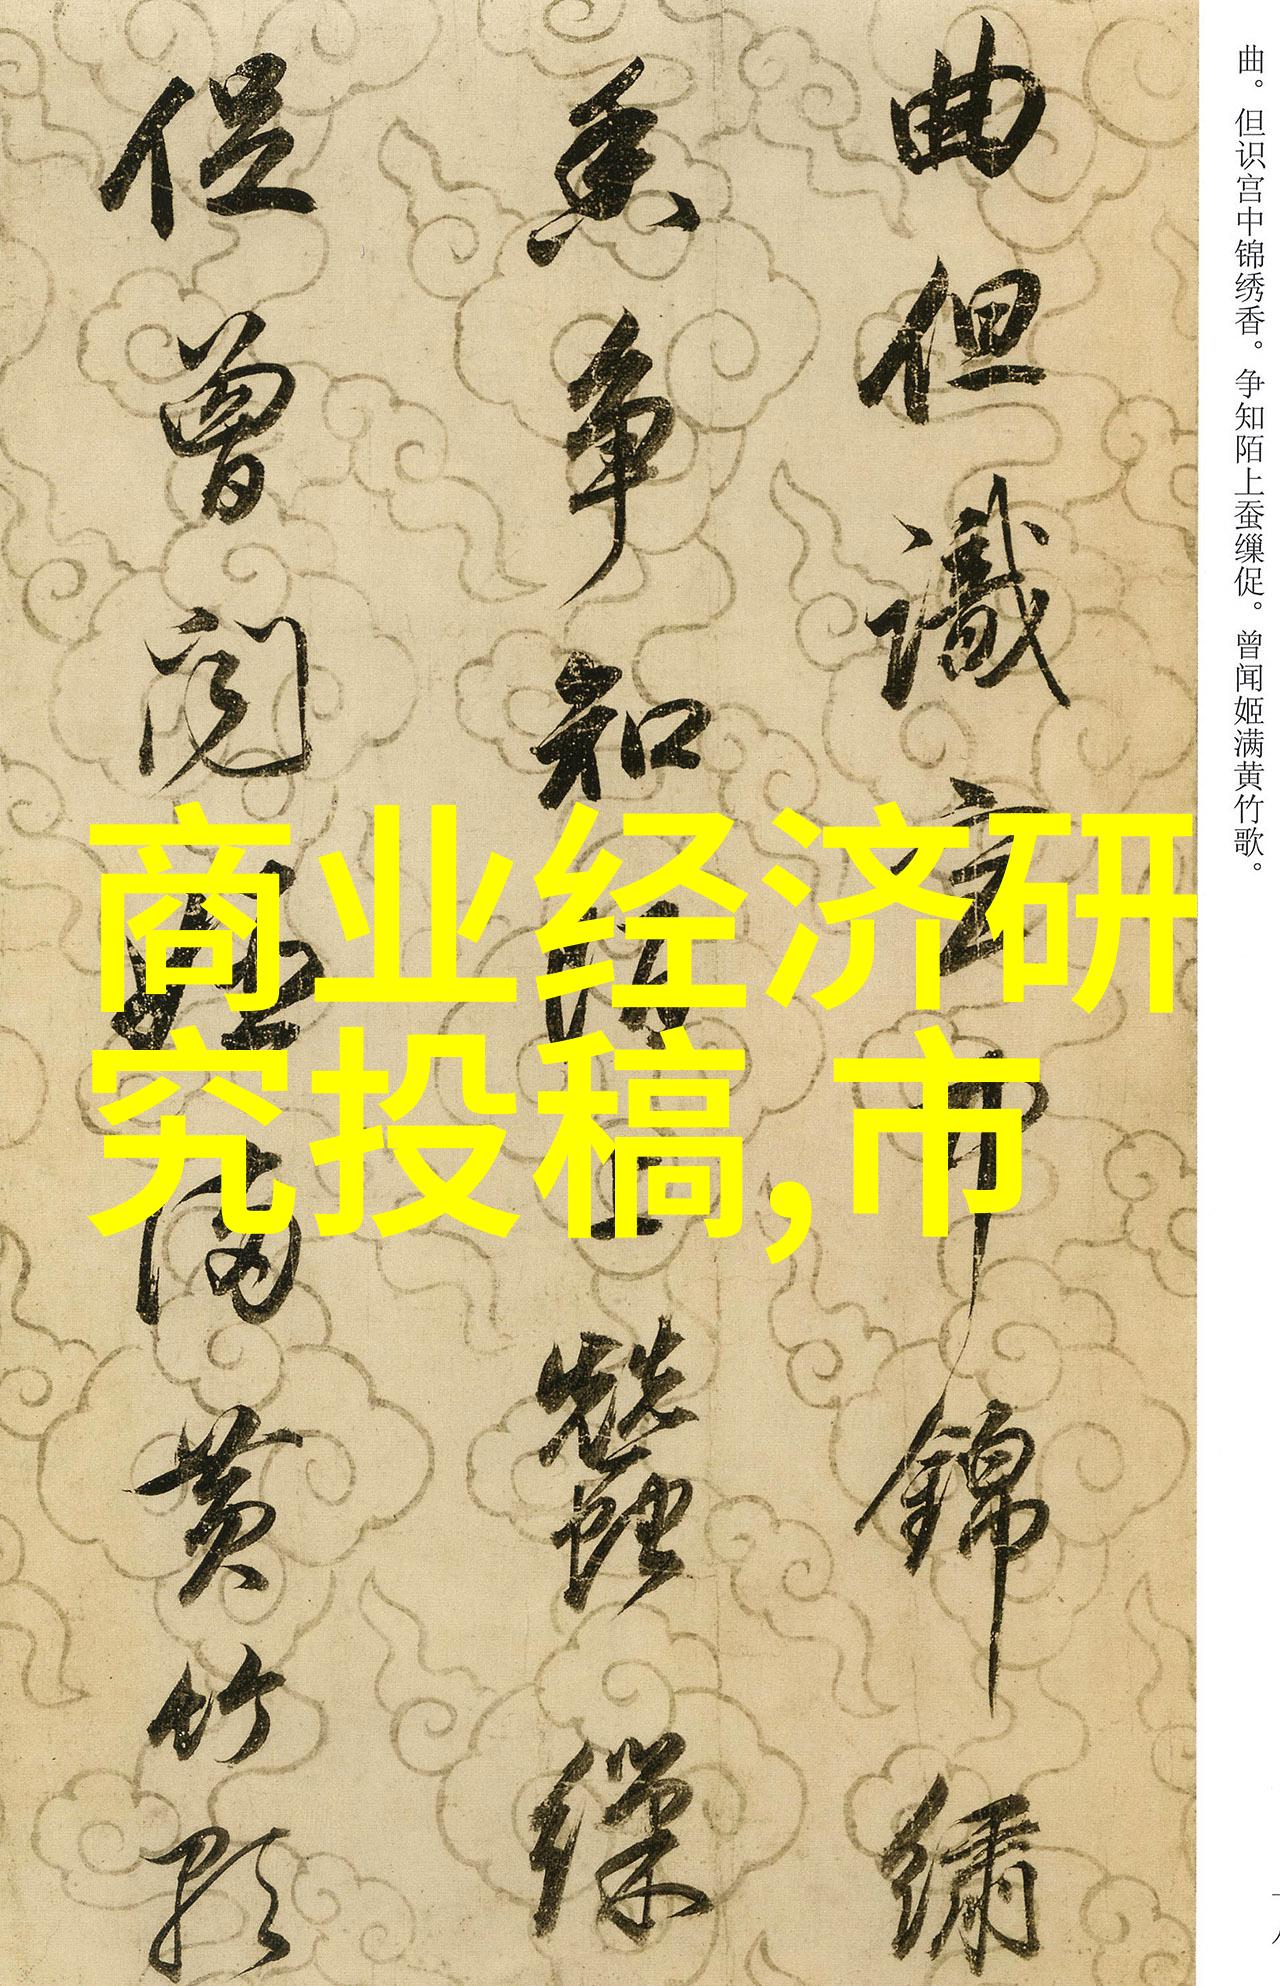 曲。但识宫中锦绣香。争知陌上蚕缫促。曾闻姬满黄竹歌。
曲但識宫中錦繡
香争知陌上蠶繅
促曾聞姬满黄竹歌
商业经济研
究投稿,市